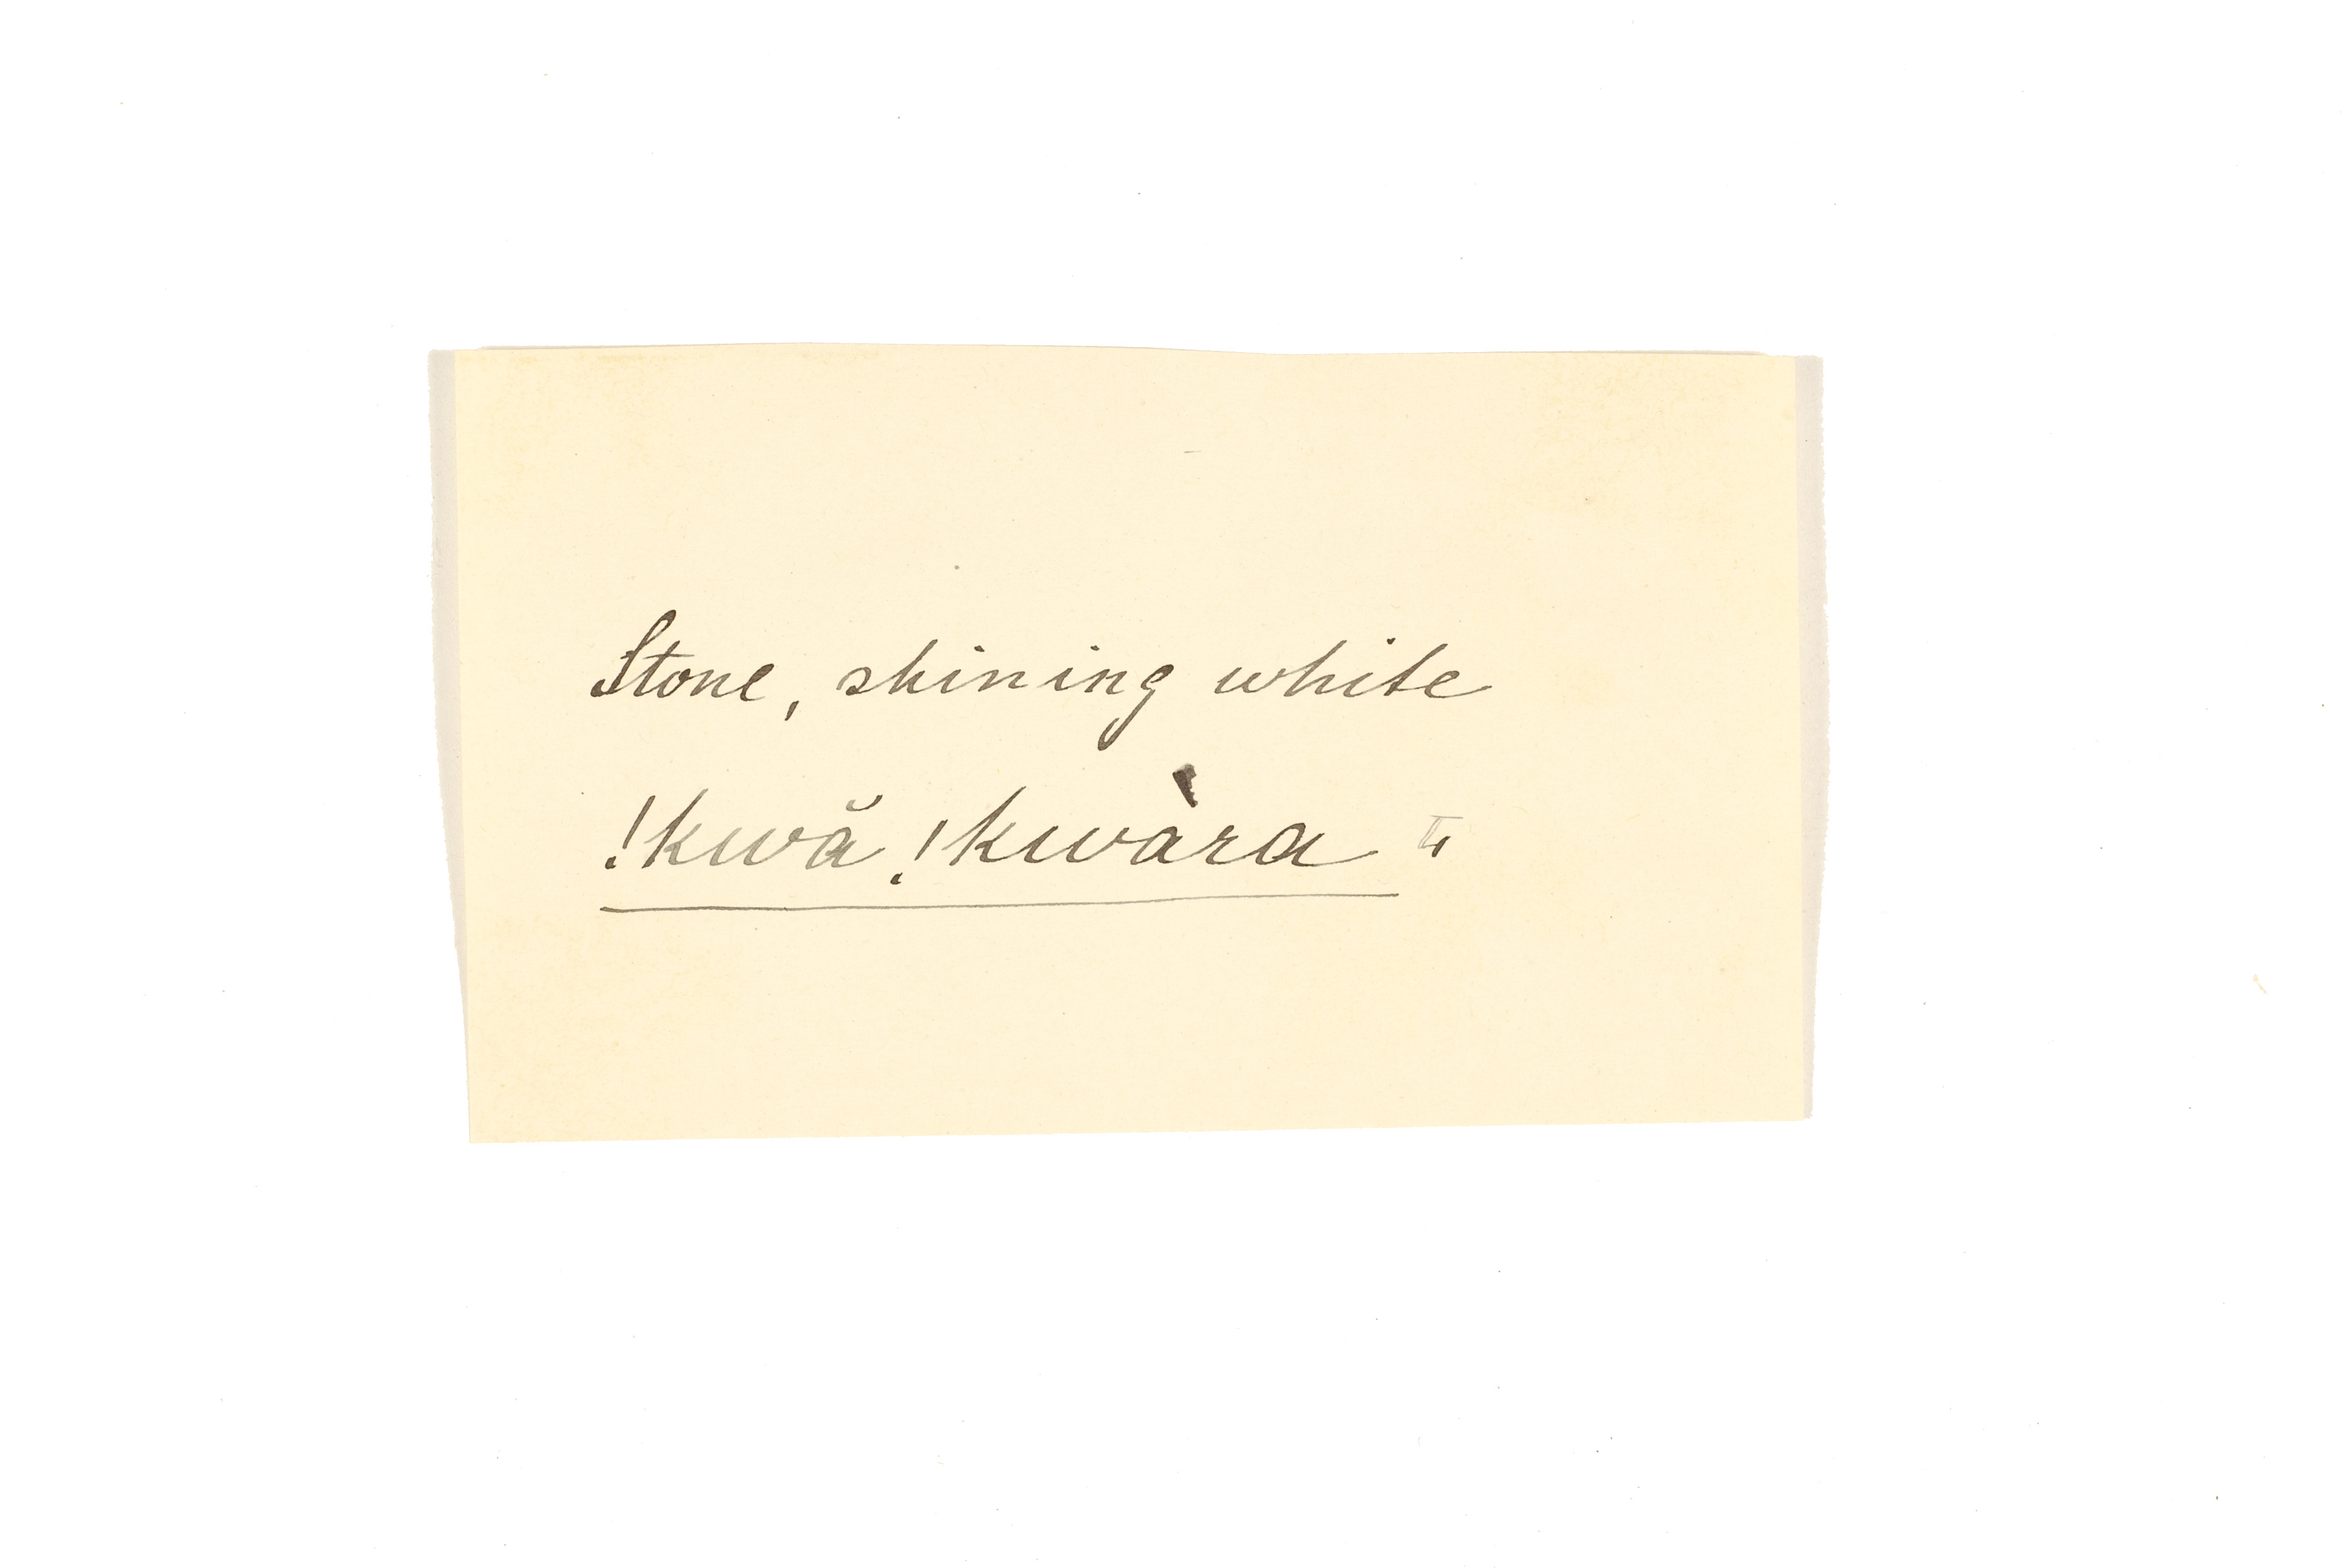 Stone, shining white
!kwă !kwàra